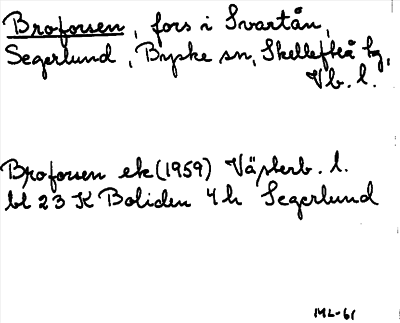 Broforsen, fors i Svartån,
Segerlund, Byske sn, Skellefteå tg,
Vb. l.
Broforsen ek (1959) Västerb. l.
bl 23 K Boliden 4h Segerlund
ML-61